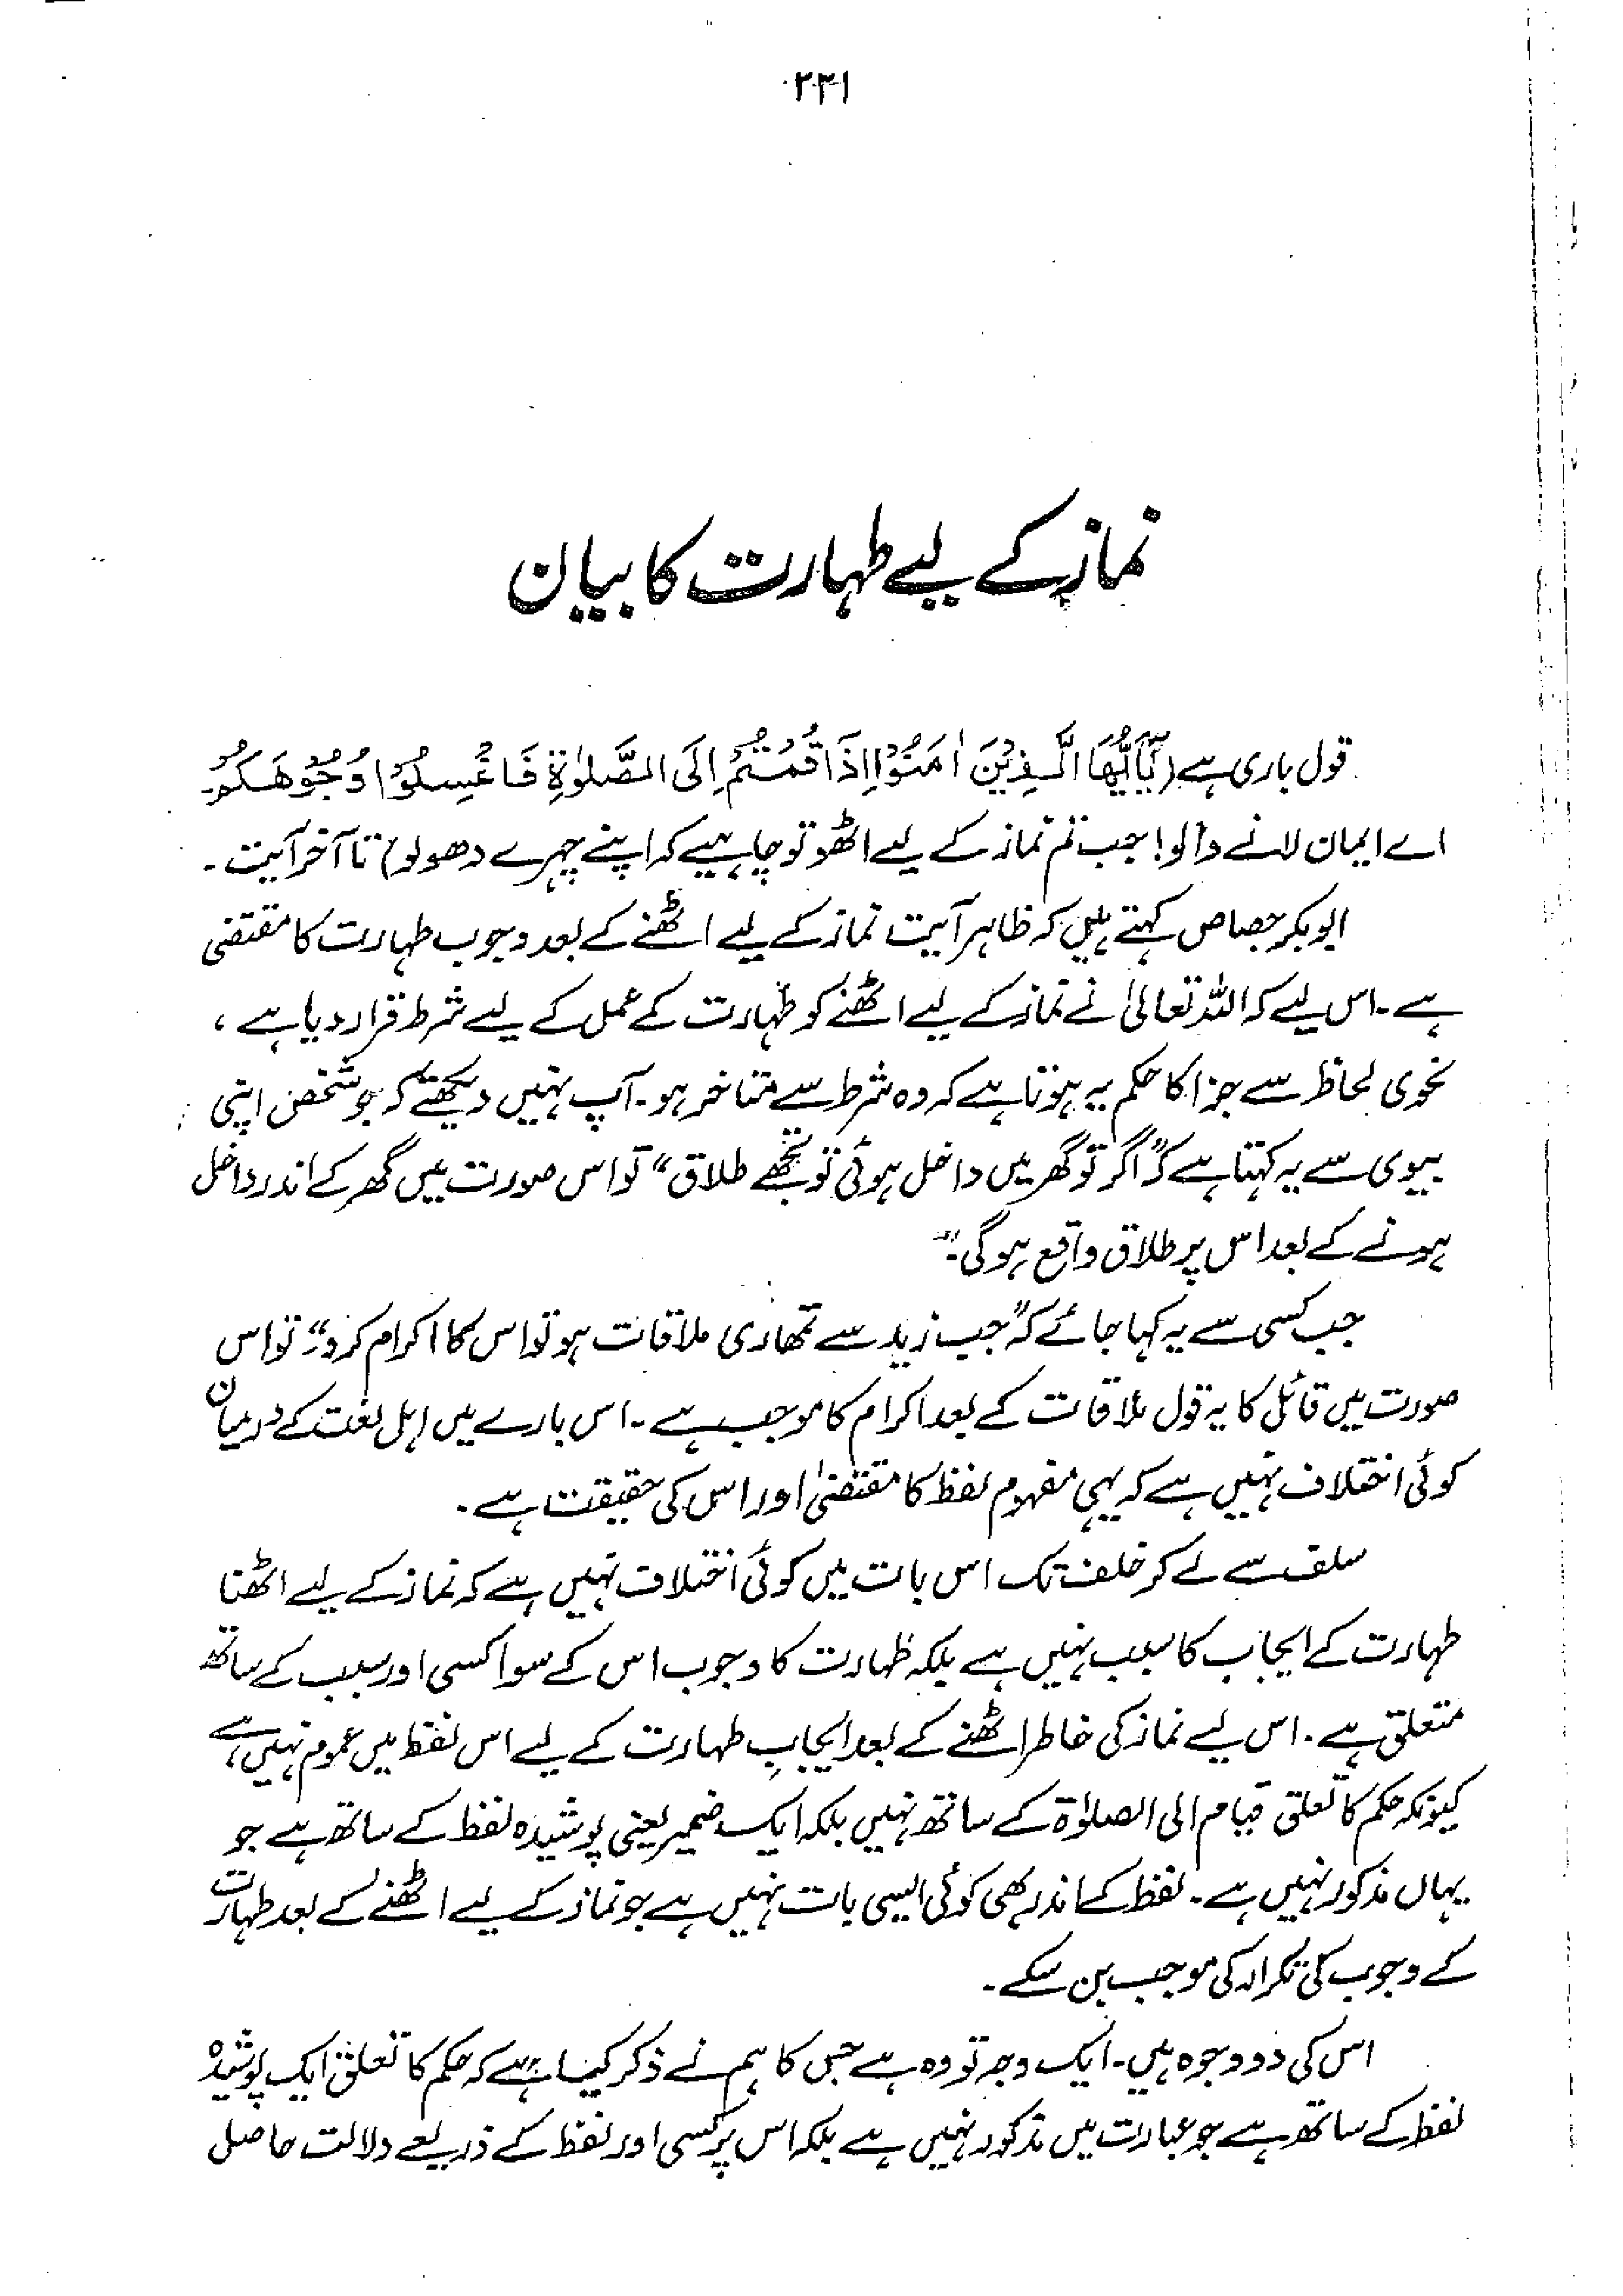 ۲۳۱
نماز کے لیے طہارت کا بیان
قول باری ہے (یٰٓاَیُّھَا الَّذِیْنَ اٰمَنُوْا اِذَا قُمْتُمْ اِلَی الصَّلوٰۃِ فَاغْسِلُوْا وُجُوْھَکُمْ۔
اے ایمان لانے والو! جب تم نماز کے لیے اٹھو تو چاہیے کہ اپنے چہرے دھولو) تا آخر آیت۔
ابوبکر جصاص کہتے ہیں کہ ظاہر آیت نماز کے لیے اٹھنے کے بعد وجوب طہارت کا مقتضی
ہے۔ اس لیے کہ اللہ تعالیٰ نے نماز کے لیے اٹھنے کو طہارت کے عمل کے لیے شرط قرار دیا ہے،
نحوی لحاظ سے جزا کا حکم یہ ہوتا ہے کہ وہ شرط سے متاخر ہو۔ آپ نہیں دیکھتے کہ جو شخص اپنی
بیوی سے یہ کہتا ہے کہ "اگر تو گھر میں داخل ہوئی تو تجھے طلاق" تو اس صورت میں گھر کے اندر داخل
ہونے کے بعد اس پر طلاق واقع ہوگی۔"
جب کسی سے یہ کہا جائے کہ "جب زید سے تمہاری ملاقات ہو تو اس کا اکرام کرو" تو اس
صورت میں قائل کا یہ قول ملاقات کے بعد اکرام کا موجب ہے۔ اس بارے میں اہل لغت کے درمیان
کوئی اختلاف نہیں ہے کہ یہی مفہوم لفظ کا مقتضیٰ اور اس کی حقیقت ہے۔
سلف سے لے کر خلف تک اس بات میں کوئی اختلاف نہیں ہے کہ نماز کے لیے اٹھنا
طہارت کے ایجاب کا سبب نہیں ہے بلکہ طہارت کا وجوب اس کے سوا کسی اور سبب کے ساتھ
متعلق ہے۔ اس لیے نماز کی خاطر اٹھنے کے بعد ایجابِ طہارت کے لیے اس لفظ میں عموم نہیں ہے،
کیونکہ حکم کا تعلق قیام الی الصلوٰۃ کے ساتھ نہیں بلکہ ایک ضمیر یعنی پوشیدہ لفظ کے ساتھ ہے جو
یہاں مذکور نہیں ہے۔ لفظ کے اندر بھی کوئی ایسی بات نہیں ہے جو نماز کے لیے اٹھنے کے بعد طہارت
کے وجوب کی تکرار کی موجب بن سکے۔
اس کی دو وجوہ ہیں۔ ایک وجہ تو وہ ہے جس کا ہم نے ذکر کیا ہے کہ حکم کا تعلق ایک پوشیدہ
لفظ کے ساتھ ہے جو عبارت میں مذکور نہیں ہے بلکہ اس پر کسی اور لفظ کے ذریعے دلالت حاصل